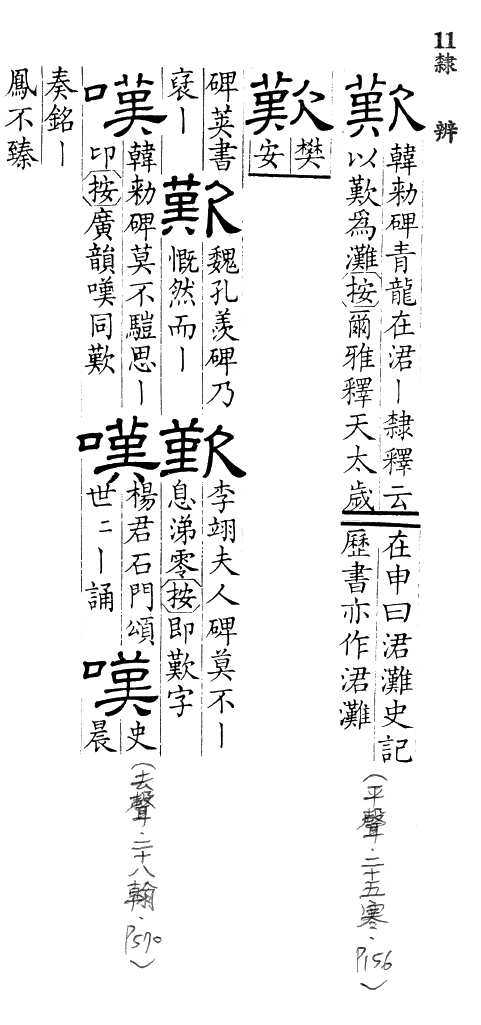 11隸 辨
歎
韓勑碑青龍在涒丨隸釋云
以歎為灘按爾雅釋天太歲
在申曰涒灘史記
歷書亦作涒灘
(平聲·二十五寒·P156)
歎
樊
安
碑莢書
裦丨
歎
魏孔羨碑乃
慨然而丨
歎
李翊夫人碑莫不丨
息涕零按即歎字
嘆
韓勑碑莫不思丨
卬按廣韻嘆同歎
嘆
楊君石門頌
世二丨誦
嘆
史
晨
(去聲·二十八翰·P570)
奏銘丨
鳳不臻